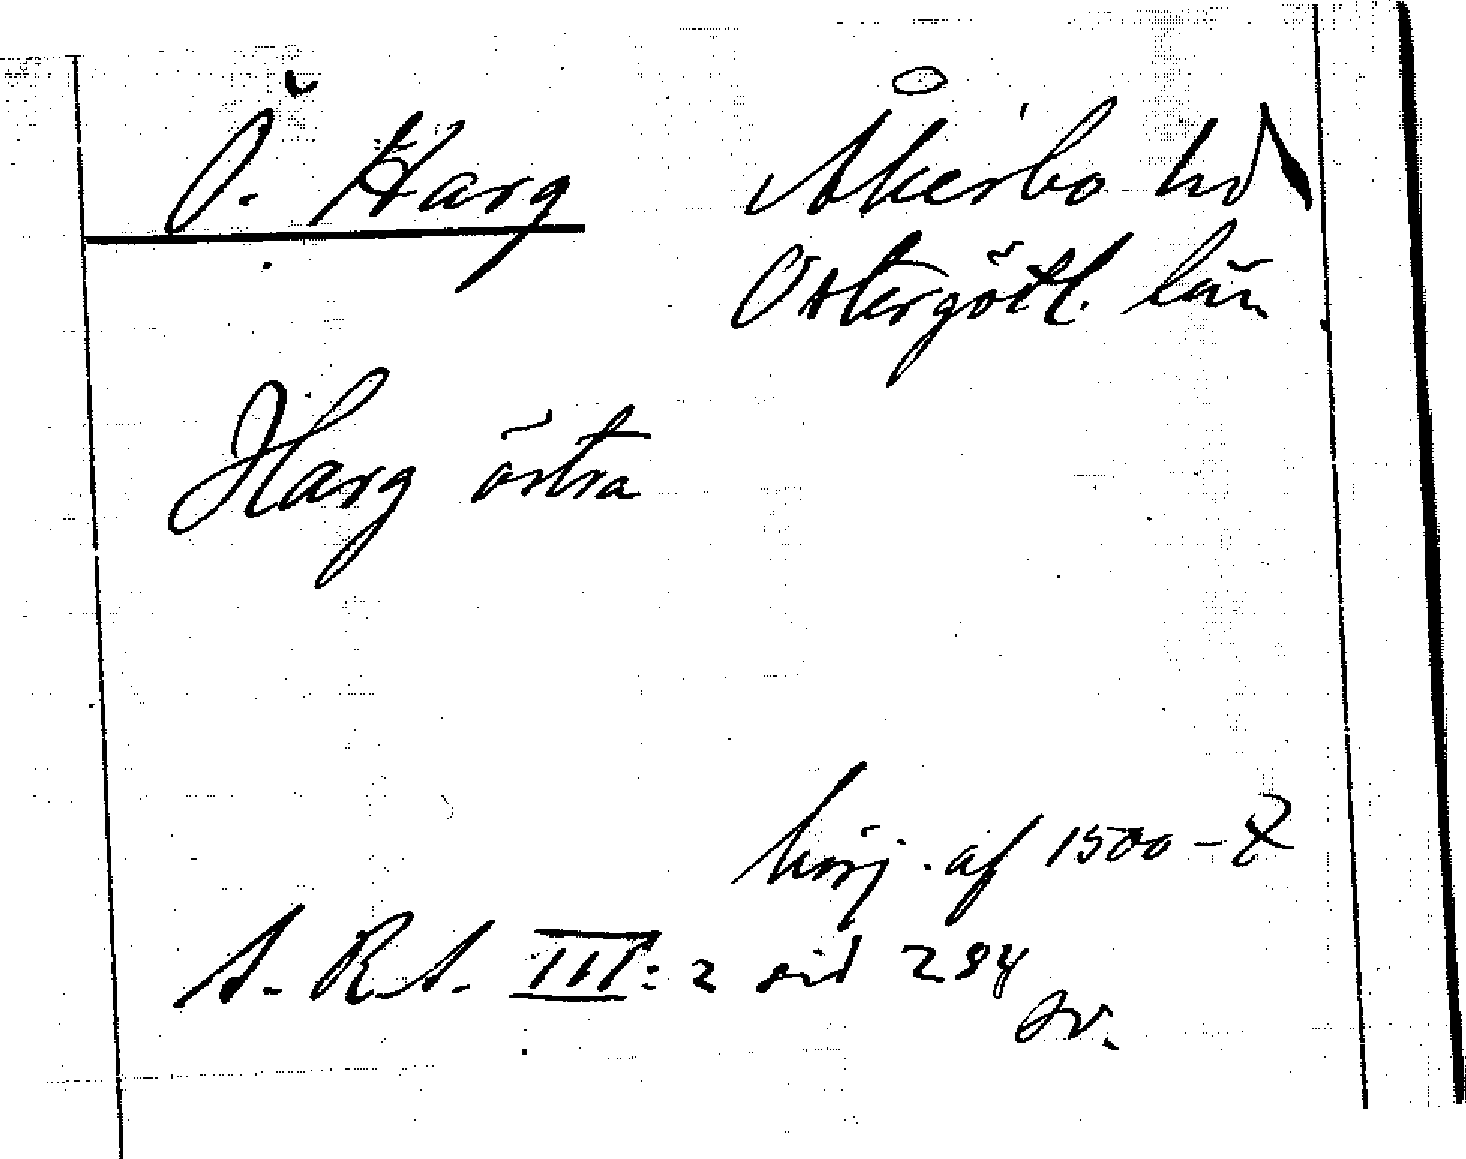 Ö. Harg Åkerbo hd
Östergötl. län
Harg östra
börj. af 1500-t
S. R. A. III: 2 sid 284
Sv.